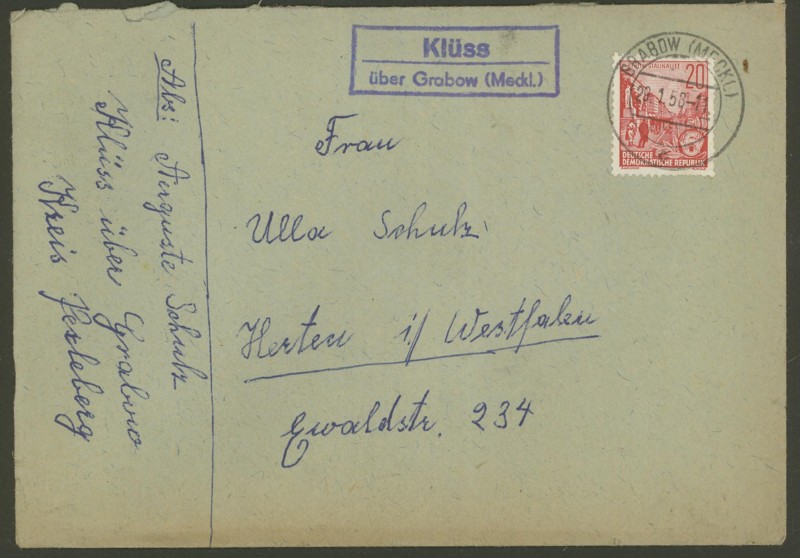 Klüss
über Grabow (Meckl.)
GRABOW (MECKL)
20
DEUTSCHE
DEMOKRATISCHE REPUBLIK
Frau
Ulla Schulz
Herten i/ Westfalen
Ewaldstr. 234
Abs: Auguste Schulz
Klüss über Grabow
Kreis Perleberg